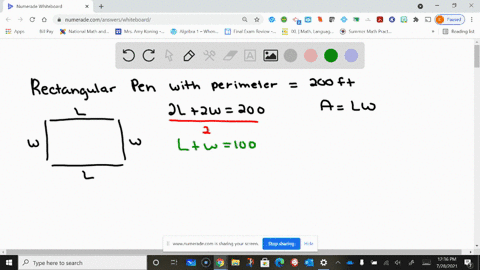 Numerade Whiteboard
numerade.com/answers/whiteboard/
Paused
Apps
Bill Pay
National Math and ...
Mrs. Amy Koenig - ...
Algebra 1 - Whenm...
Final Exam Review -...
00_] Math, Languag...
Summit Math Practic...
Reading list
Rectangular Pen with perimeter = 200 ft
L
2L + 2W = 200
A = LW
2
W
W
L + W = 100
L
www.numerade.com is sharing your screen.
Stop sharing
Hide
Type here to search
17:16 PM
7/28/2021